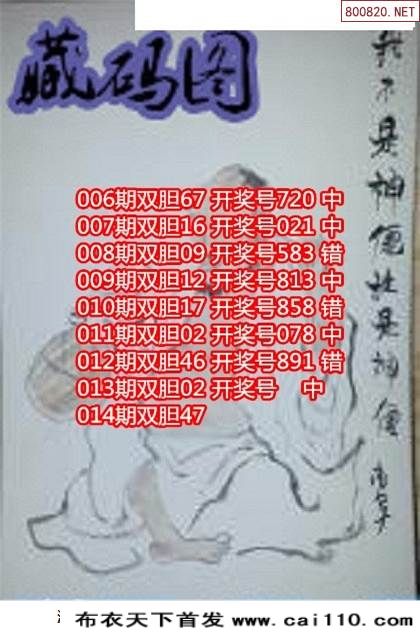 800820.NET
藏码图
我不是神便也是神便
006期双胆67 开奖号720 中
007期双胆16 开奖号021 中
008期双胆09 开奖号583 错
009期双胆12 开奖号813 中
010期双胆17 开奖号858 错
011期双胆02 开奖号078 中
012期双胆46 开奖号891 错
013期双胆02 开奖号 中
014期双胆47
布衣天下首发 www.cai110.com